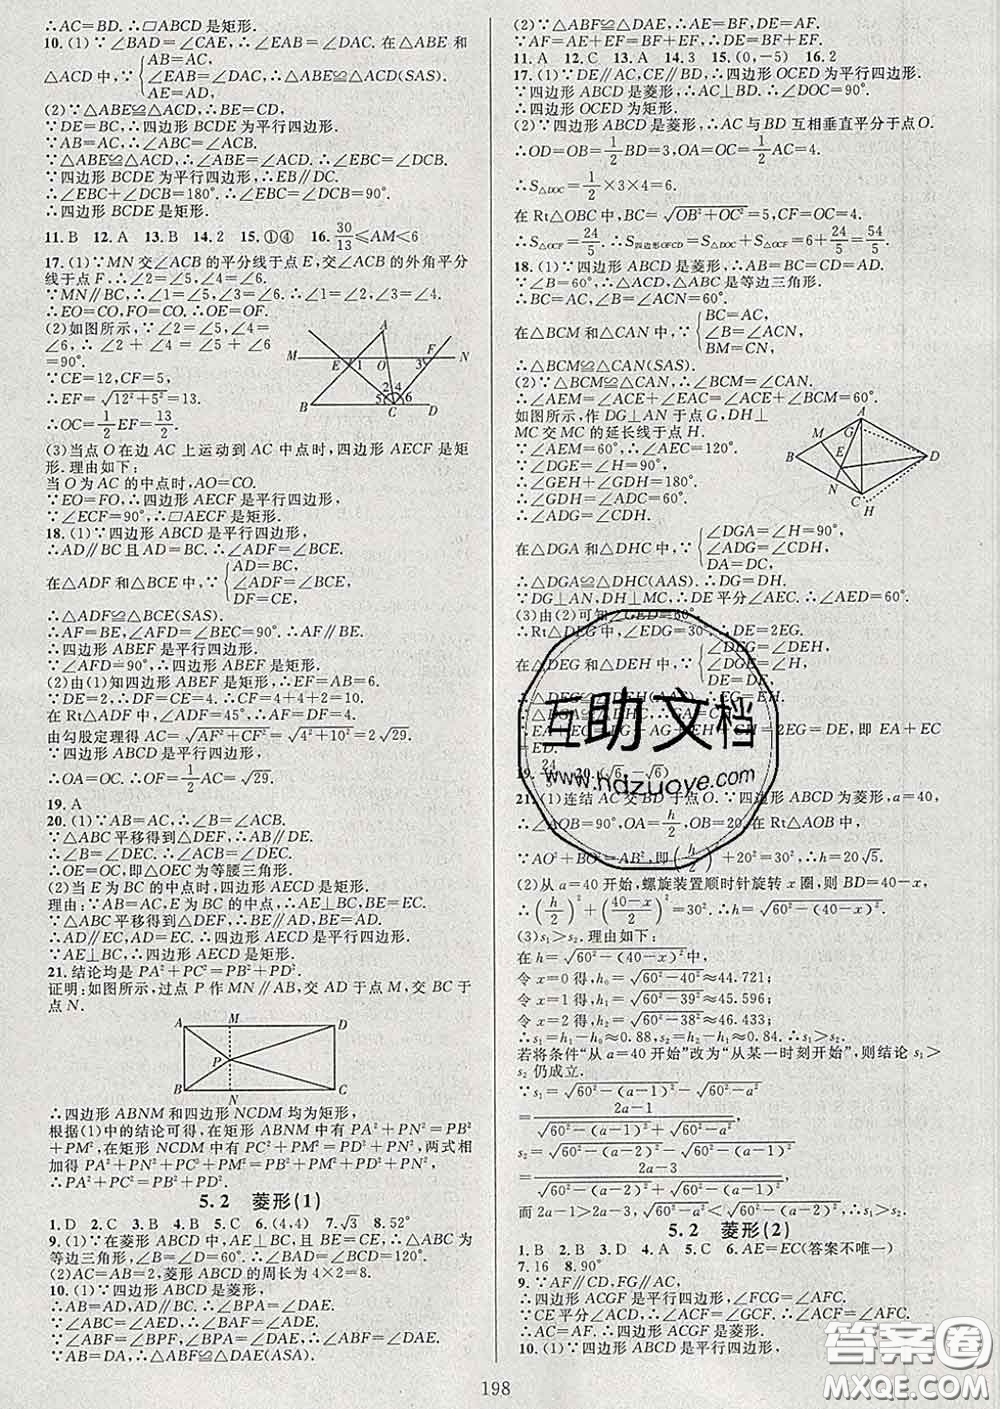 ∴AC=BD. ∴□ABCD是矩形.
10.(1)∵∠BAD=∠CAE,∴∠EAB=∠DAC. 在△ABE和
△ACD中,∵{AB=AC, ∠EAB=∠DAC, AE=AD, ∴△ABE≌△ACD(SAS).
(2)∵△ABE≌△ACD,∴BE=CD,
∵DE=BC,∴四边形BCDE为平行四边形.
∵AB=AC,∴∠ABC=∠ACB.
∵△ABE≌△ACD,∴∠ABE=∠ACD,∴∠EBC=∠DCB.
∵四边形BCDE为平行四边形,∴EB∥DC.
∴∠EBC+∠DCB=180°. ∴∠EBC=∠DCB=90°.
∴四边形BCDE是矩形.
11.B 12.A 13.B 14.2 15.①④ 16.30/13≤AM<6
17.(1)∵MN交∠ACB的平分线于点E,交∠ACB的外角平分
线于点F,∴∠2=∠5,∠4=∠6.
∵MN∥BC,∴∠1=∠5,∠3=∠6. ∴∠1=∠2,∠3=∠4.
∴EO=CO,FO=CO. ∴OE=OF.
(2)如图所示,∵∠2=∠5,∠4=
∠6,∴∠2+∠4=∠5+∠6
=90°.
∵CE=12,CF=5,
∴EF=√(12²+5²)=13.
∴OC=1/2EF=13/2.
M E O F N A 1 3 2 4 5 6 B C D
(3)当点O在边AC上运动到AC中点时,四边形AECF是矩
形. 理由如下:
当O为AC的中点时,AO=CO.
∵EO=FO,∴四边形AECF是平行四边形,
∵∠ECF=90°,∴□AECF是矩形.
18.(1)∵四边形ABCD是平行四边形,
∴AD∥BC且AD=BC. ∴∠ADF=∠BCE.
在△ADF和△BCE中,∵{AD=BC, ∠ADF=∠BCE, DF=CE,
∴△ADF≌△BCE(SAS).
∴AF=BE,∠AFD=∠BEC=90°. ∴AF∥BE.
∴四边形ABEF是平行四边形.
∵∠AFD=90°,∴四边形ABEF是矩形.
(2)由(1)知四边形ABEF是矩形,∴EF=AB=6.
∵DE=2,∴DF=CE=4. ∴CF=4+4+2=10.
在Rt△ADF中,∠ADF=45°,∴AF=DF=4.
由勾股定理得AC=√(AF²+CF²)=√(4²+10²)=2√29.
∵四边形ABCD是平行四边形,
∴OA=OC. ∴OF=1/2AC=√29.
19.A
20.(1)∵AB=AC,∴∠B=∠ACB.
∵△ABC平移得到△DEF,∴AB∥DE.
∴∠B=∠DEC. ∴∠ACB=∠DEC.
∴OE=OC,即△OEC为等腰三角形.
(2)当E为BC的中点时,四边形AECD是矩形.
理由:∵AB=AC,E为BC的中点,∴AE⊥BC,BE=EC.
∵△ABC平移得到△DEF,∴BE∥AD,BE=AD.
∴AD∥EC,AD=EC. ∴四边形AECD是平行四边形.
∵AE⊥BC,∴四边形AECD是矩形.
21.结论均是PA²+PC²=PB²+PD².
证明:如图所示,过点P作MN∥AB,交AD于点M,交BC于
点N.
A M D P B N C
∴四边形ABNM和四边形NCDM均为矩形,
根据(1)中的结论可得,在矩形ABNM中有PA²+PN²=PB²
+PM²,在矩形NCDM中有PC²+PM²=PD²+PN²,两式相
加得PA²+PN²+PC²+PM²=PB²+PM²+PD²+PN²,
∴PA²+PC²=PB²+PD².
5.2 菱形(1)
1.D 2.C 3.B 4.B 5.C 6.(4,4) 7.√3 8.52°
9.(1)∵在菱形ABCD中,AE⊥BC,且BE=CE,∴△ABC为
等边三角形,∴∠B=∠D=60°. ∴∠BAD=∠BCD=120°.
(2)AC=AB=2,菱形ABCD的周长为4×2=8.
10.(1)∵四边形ABCD是菱形,
∴AB=AD,AD∥BC. ∴∠BPA=∠DAE.
∵∠ABC=∠AED,∴∠BAF=∠ADE.
∵∠ABF=∠BPF,∠BPA=∠DAE,∴∠ABF=∠DAE.
∵AB=DA,∴△ABF≌△DAE(ASA).
(2)∵△ABF≌△DAE,∴AE=BF,DE=AF.
∵AF=AE+EF=BF+EF,∴DE=BF+EF.
11.A 12.C 13.A 14.3 15.(0,-5) 16.2
17.(1)∵DE∥AC,CE∥BD,∴四边形OCED为平行四边形.
∵四边形ABCD是菱形,∴AC⊥BD. ∴∠DOC=90°.
∴四边形OCED为矩形.
(2)∵四边形ABCD是菱形,∴AC与BD互相垂直平分于点O.
∴OD=OB=1/2BD=3,OA=OC=1/2AC=4.
∴S△DOC=1/2×3×4=6.
在Rt△OBC中,BC=√(OB²+OC²)=5,CF=OC=4.
∴S△OCF=24/5. ∴S四边形OFCD=S△DOC+S△OCF=6+24/5=54/5.
18.(1)∵四边形ABCD是菱形,∴AB=BC=CD=AD.
∵∠B=60°,∴△ABC,△ACD是等边三角形.
∴BC=AC,∠B=∠ACN=60°.
在△BCM和△CAN中,∵{BC=AC, ∠B=∠ACN, BM=CN,
∴△BCM≌△CAN(SAS).
(2)∵△BCM≌△CAN,∴∠BCM=∠CAN.
∴∠AEM=∠ACE+∠EAC=∠ACE+∠BCM=60°.
如图所示,作DG⊥AN于点G,DH⊥
MC交MC的延长线于点H.
∵∠AEM=60°,∴∠AEC=120°.
∵∠DGE=∠H=90°,
∴∠GEH+∠GDH=180°.
∴∠GDH=∠ADC=60°.
∴∠ADG=∠CDH.
A M G B E D N C H
在△DGA和△DHC中,∵{∠DGA=∠H=90°, ∠ADG=∠CDH, DA=DC,
∴△DGA≌△DHC(AAS). ∴DG=DH.
∵DG⊥AN,DH⊥MC,∴DE平分∠AEC. ∴∠AED=60°.
(3)由(2)可知∠GED=60°.
∴Rt△DEG中,∠EDG=30°,∴DE=2EG.
在△DEG和△DEH中,∵{∠DEG=∠DEH, ∠DGE=∠H, DE=DE,
∴△DEG≌△DEH(AAS). ∴EG=EH.
∵△DGA≌△DHC,∴GA=HC.
∴EA+EC=EG+AG+EH-CH=2EG=DE,即EA+EC
=ED.
19.24/5 20.(√6,-√6)
21.(1)连结AC交BD于点O. ∵四边形ABCD为菱形,a=40,
∴∠AOB=90°,OA=h/2,OB=20. 在Rt△AOB中,
∵AO²+BO²=AB²,即(h/2)²+20²=30²,∴h=20√5.
(2)从a=40开始,螺旋装置顺时针旋转x圈,则BD=40-x,
∴(h/2)²+((40-x)/2)²=30². ∴h=√(60²-(40-x)²).
(3)s₁>s₂. 理由如下:
在h=√(60²-(40-x)²)中,
令x=0得,h₀=√(60²-40²)≈44.721;
令x=1得,h₁=√(60²-39²)≈45.596;
令x=2得,h₂=√(60²-38²)≈46.433;
∴s₁=h₁-h₀≈0.88,s₂=h₂-h₁≈0.84,∴s₁>s₂.
若将条件“从a=40开始”改为“从某一时刻开始”,则结论s₁>
s₂仍成立.
∵s₁=√(60²-(a-1)²)-√(60²-a²)
=(2a-1)/(√(60²-(a-1)²)+√(60²-a²)),
s₂=√(60²-(a-2)²)-√(60²-(a-1)²)
=(2a-3)/(√(60²-(a-2)²)+√(60²-(a-1)²)),
而2a-1>2a-3,√(60²-a²)<√(60²-(a-2)²),∴s₁>s₂.
5.2 菱形(2)
1.B 2.B 3.D 4.A 5.C 6.AE=EC(答案不唯一)
7.16 8.90°
9.∵AF∥CD,FG∥AC,
∴四边形ACGF是平行四边形,∠FCG=∠AFC.
∵CE平分∠ACD,∴∠ACF=∠GCF. ∴∠ACF=∠AFC.
∴AC=AF. ∴四边形ACGF是菱形.
10.(1)∵四边形ABCD是平行四边形,
198
互助文档
www.hdzuoye.com
答案圈
MXQE.COM